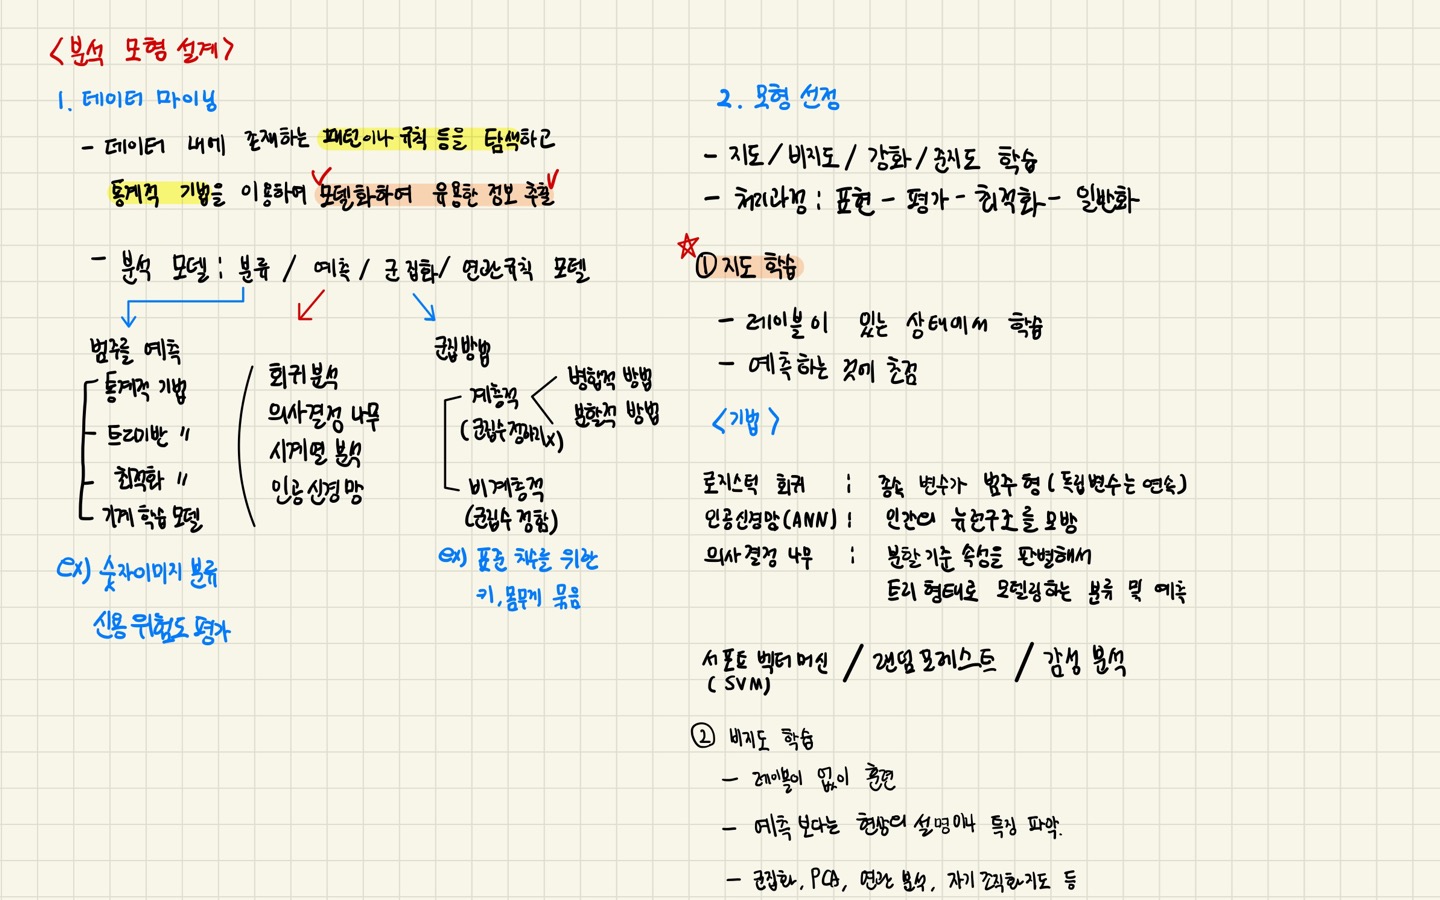 <분석 모형 설계>
1. 데이터 마이닝
- 데이터 내에 존재하는 패턴이나 규칙 등을 탐색하고
통계적 기법을 이용하여 모델화하여 유용한 정보 추출
- 분석 모델 : 분류 / 예측 / 군집화 / 연관규칙 모델
범주를 예측
통계적 기법
트리기반 〃
최적화 〃
기계 학습 모델
ex) 숫자이미지 분류
신용 위험도 평가
회귀분석
의사결정 나무
시계열 분석
인공신경망
군집방법
계층적
(군집수 정하기x)
병합적 방법
분할적 방법
비계층적
(군집수 정함)
ex) 표준 치수를 위한
키, 몸무게 묶음
2. 모형 선정
- 지도 / 비지도 / 강화 / 준지도 학습
- 처리과정 : 표현 - 평가 - 최적화 - 일반화
☆ ① 지도 학습
- 레이블이 있는 상태에서 학습
- 예측하는 것에 초점
<기법>
로지스틱 회귀 : 종속 변수가 범주형 (독립변수는 연속)
인공신경망(ANN) : 인간의 뉴런구조를 모방
의사결정 나무 : 분할기준 속성을 판별해서
트리 형태로 모델링하는 분류 및 예측
서포트 벡터머신 / 랜덤포레스트 / 감성 분석
(SVM)
② 비지도 학습
- 레이블이 없이 훈련
- 예측 보다는 현상의 설명이나 특징 파악.
- 군집화, PCA, 연관 분석, 자기 조직화지도 등